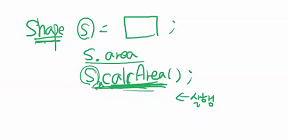 Shape s = ;
s.area
s.calcArea();
←실행